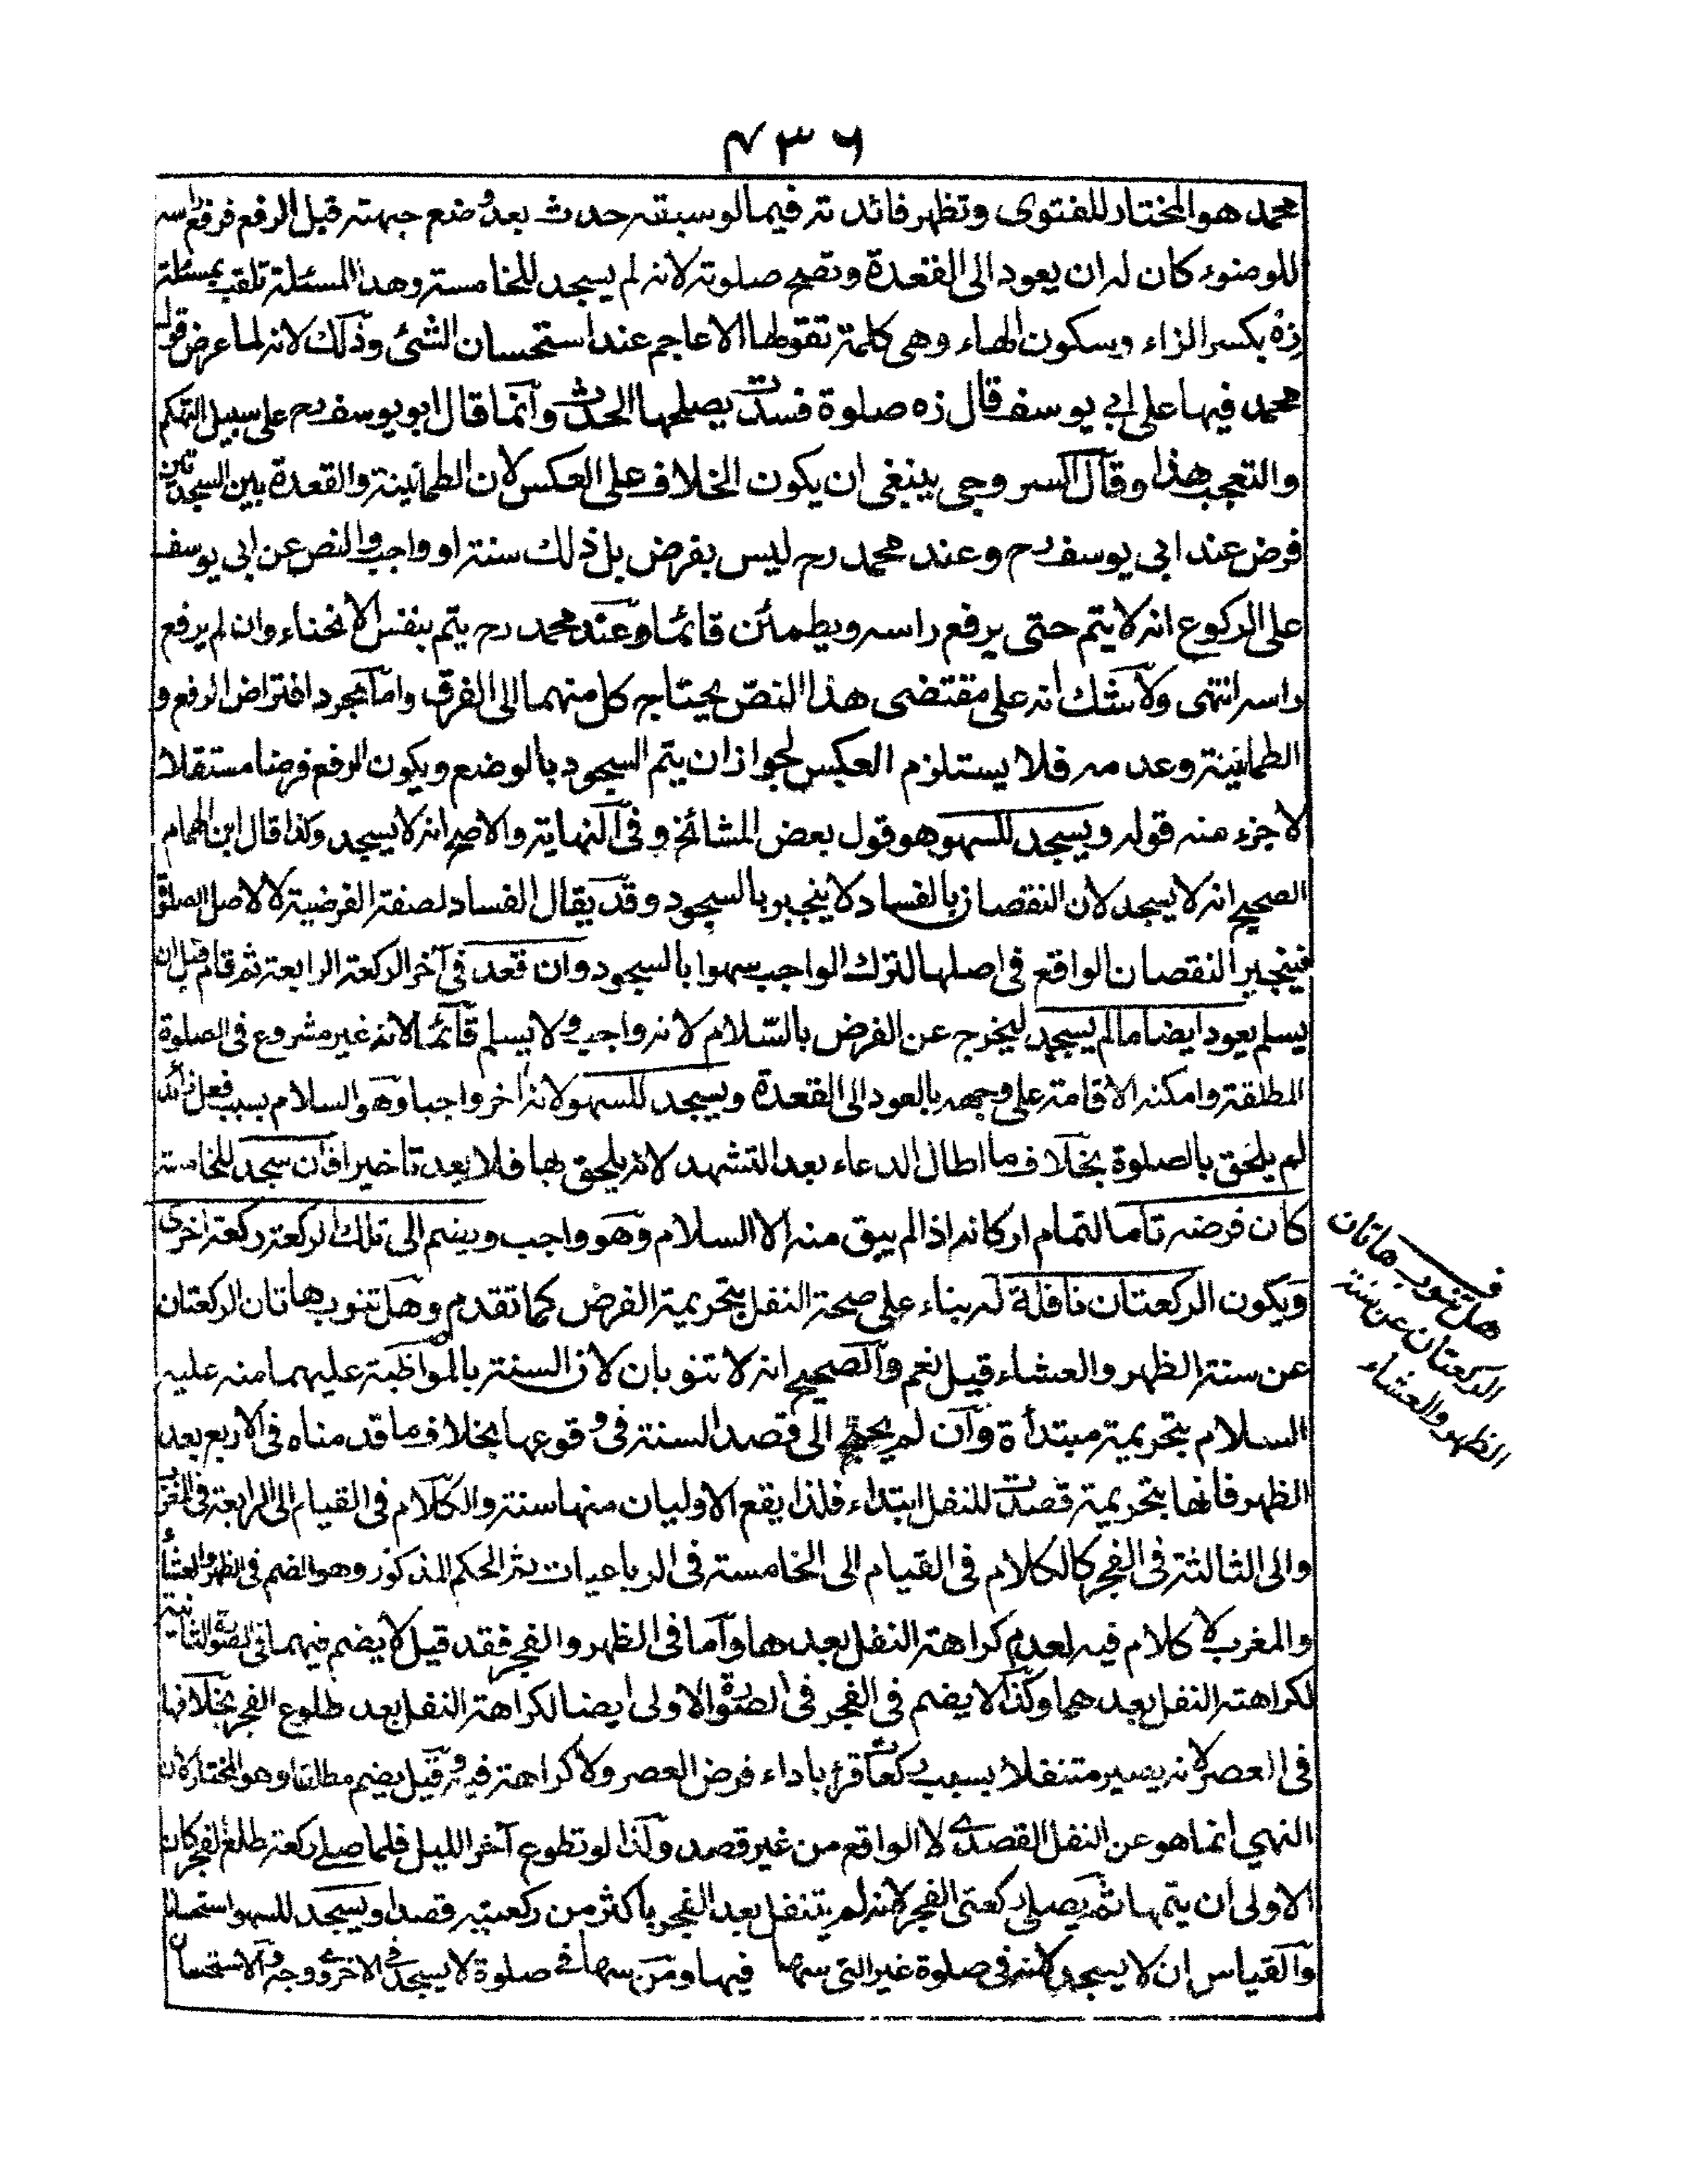 ٤٣٦
محمد هو المختار للفتوى وتظهر فائدته فيما لو سبقه حدث بعد وضع جبهته قبل الرفع فرفع راسه
للوضوء كان له ان يعود الى القعدة وتصح صلوته لانه لم يسجد للخامسة وهذا المسئلة تلقب بمسئلة
زه بكسر الزاء وسكون الهاء وهى كلمة تقولها الاعاجم عند استحسان الشئ وذلك لانه لما عرض قول
محمد فيها على ابي يوسف قال زه صلوة فسدت يصلحها الحدث وانما قال ابو يوسف رح على سبيل التهكم
والتعجب هذا وقال السروجي ينبغى ان يكون الخلاف على العكس لان الطمانينة والقعدة بين السجدتين
فرض عند ابى يوسف رح وعند محمد رح ليس بفرض بل ذلك سنة او واجب والنص عن ابى يوسف
على الركوع انه لا يتم حتى يرفع راسه ويطمئن قائما وعند محمد رح يتم بنفس الانحناء وان لم يرفع
راسه انتهى ولا شك انه على مقتضى هذا النص يحتاج كل منهما الى الفرق واما مجرد افتراض الرفع و
الطمانينة وعدمه فلا يستلزم العكس لجواز ان يتم السجود بالوضع ويكون الرفع فرضا مستقلا
لا جزء منه قوله ويسجد للسهو هو قول بعض المشائخ وفى النهاية والاصح انه لا يسجد وكذا قال ابن الهمام
الصحيح انه لا يسجد لان النقصان بالفساد لا ينجبر بالسجود وقد يقال الفساد لصفة الفرضية لا لاصل الصلوة
فينجبر النقصان الواقع فى اصلها لترك الواجب سهوا بالسجود وان قعد فى آخر الركعة الرابعة ثم قام قبل ان
يسلم يعود ايضا ما لم يسجد ليخرج عن الفرض بالسلام لانه واجب ولا يسلم قائما لانه غير مشروع فى الصلوة
المطلقة وامكنه الاقامة على وجهه بالعود الى القعدة ويسجد للسهو لانه اخر واجبا وهو السلام بسبب فعل زائد
لم يلحق بالصلوة بخلاف ما اطال الدعاء بعد التشهد لانه يلحق بها فلا يعد تاخيرا فان سجد للخامسة
كان فرضه تاما لتمام اركانه اذا لم يبق منه الا السلام وهو واجب ويضم الى تلك الركعة ركعة اخرى
ويكون الركعتان نافلة له بناء على صحة النفل بتحريمة الفرض كما تقدم وهل تنوب هاتان الركعتان
عن سنة الظهر والعشاء قيل نعم والصحيح انه لا تنوبان لان السنة بالمواظبة عليهما منه عليه
السلام بتحريمة مبتدأة وان لم يحتج الى قصد السنة فى وقوعها بخلاف ما قدمناه فى الاربع بعد
الظهر فانها بتحريمة قصدت للنفل ابتداء فلذا يقع الاوليان منها سنة والكلام فى القيام الى الرابعة فى المغرب
والى الثالثة فى الفجر كالكلام فى القيام الى الخامسة فى الرباعيات ثم الحكم المذكور وهو الضم فى الظهر والعشاء
والمغرب لا كلام فيه لعدم كراهة النفل بعدها واما فى الظهر والفجر فقد قيل لا يضم فيهما فى الصورة الثانية
لكراهة النفل بعدهما وكذا لا يضم فى الفجر فى الصورة الاولى ايضا لكراهة النفل بعد طلوع الفجر بخلافها
فى العصر لانه يصير متنفلا بسبب ركعات قبل اداء فرض العصر ولا كراهة فيه وقيل يضم مطلقا وهو المختار لان
النهي انما هو عن النفل القصدى لا الواقع من غير قصد ولذا لو تطوع آخر الليل فلما صلى ركعة طلع الفجر كان
الاولى ان يتمها ثم يصلى ركعتى الفجر لانه لم يتنفل بعد الفجر باكثر من ركعتيه قصدا ويسجد للسهو استحسانا
والقياس ان لا يسجد لانه فى صلوة غير التى سها فيها ومن سها فى صلوة لا يسجد فى الاخرى ووجه الاستحسان
ف
هل تنوب هاتان
الركعتان عن سنة
الظهر والعشاء